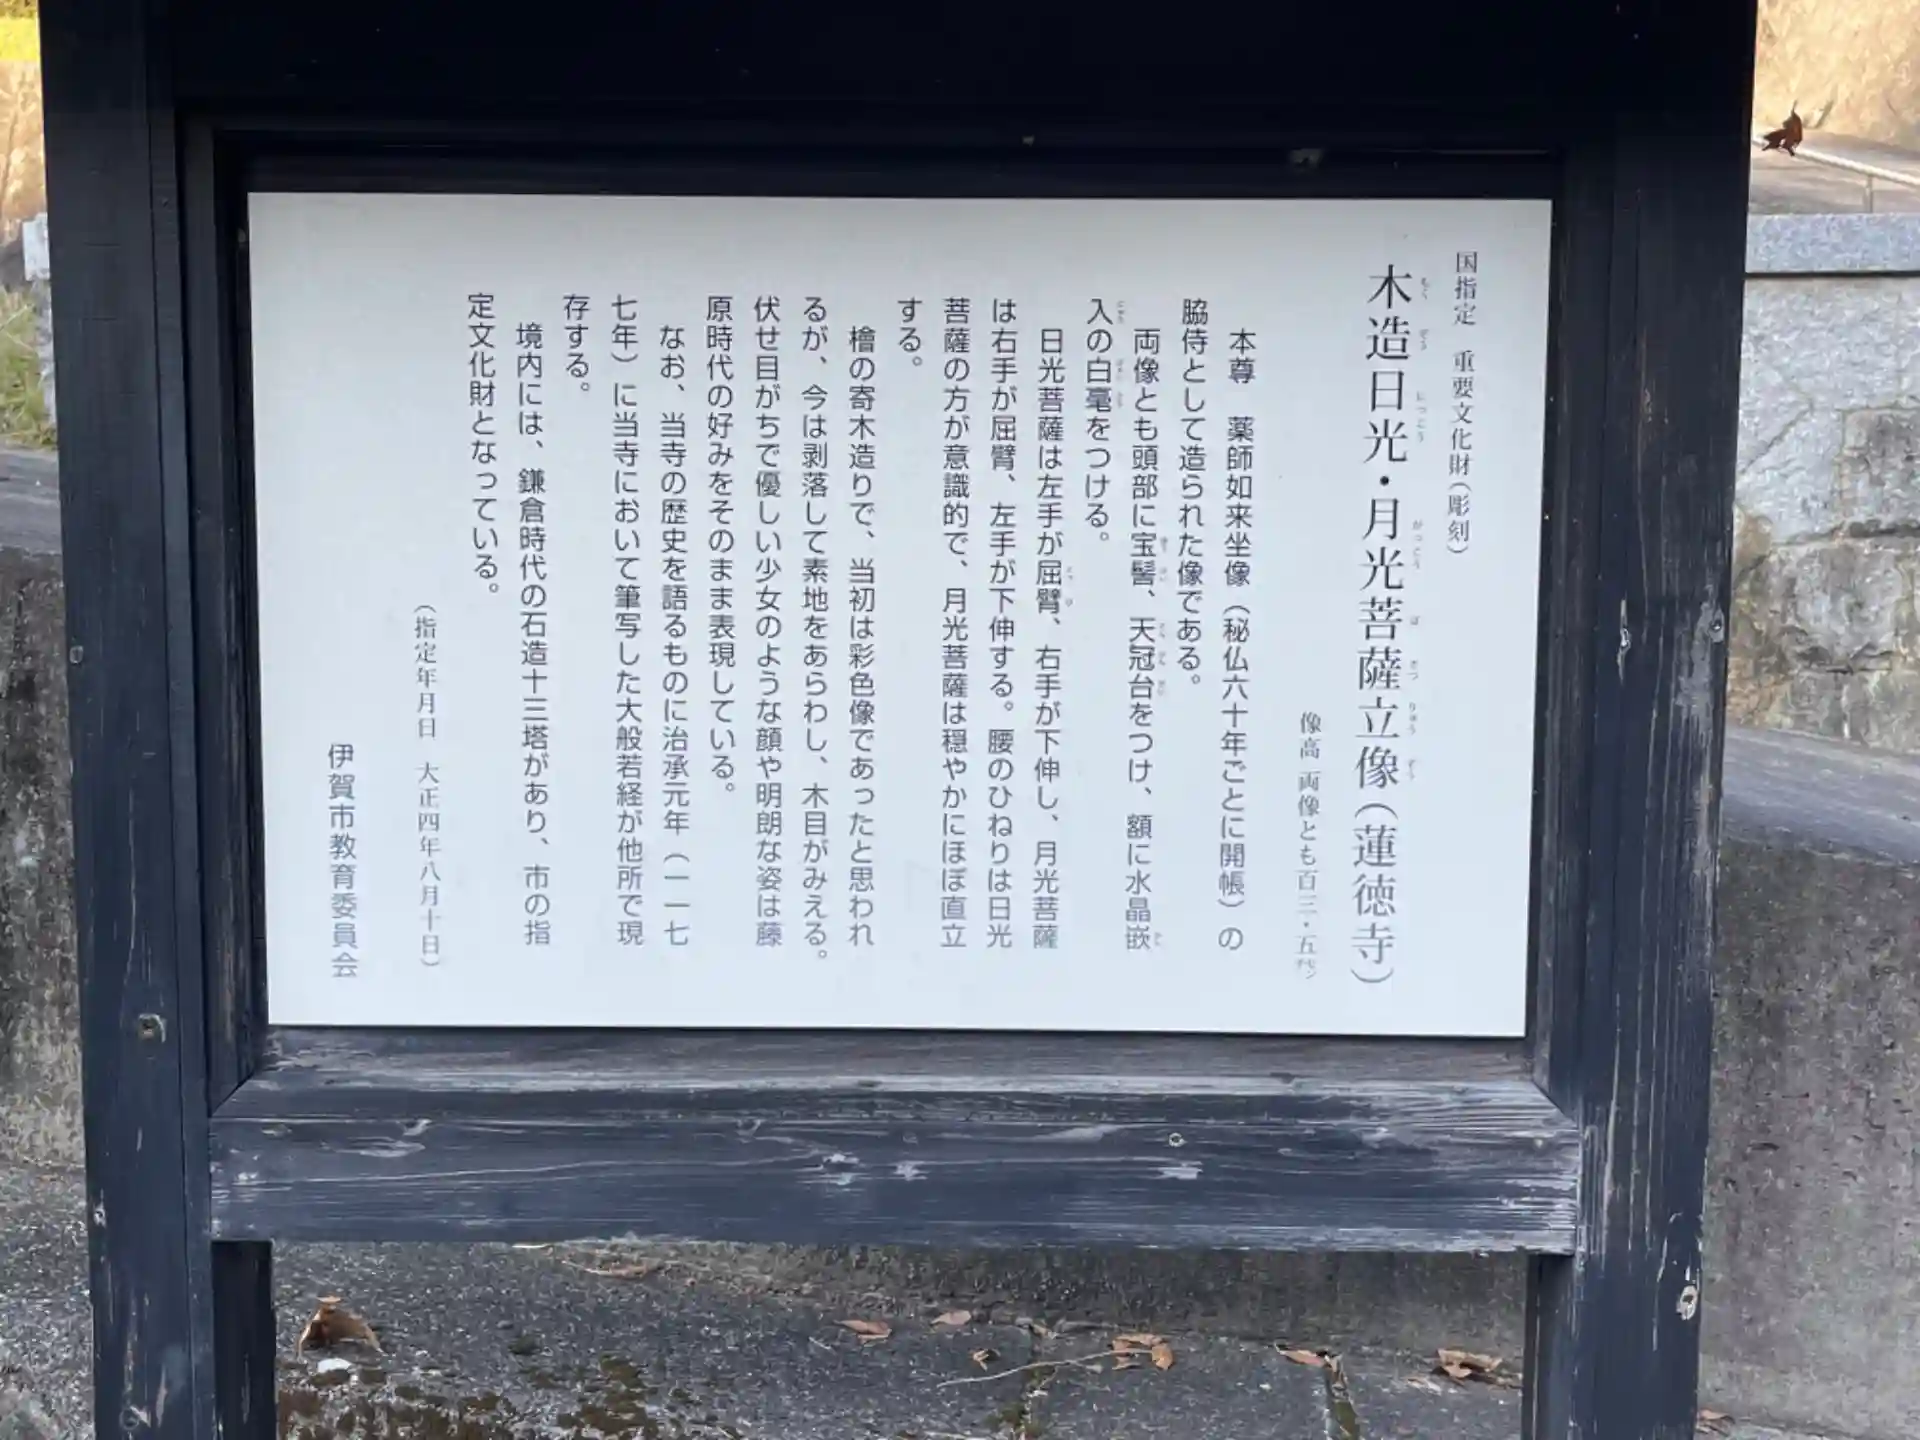 国指定 重要文化財(彫刻)
木造日光・月光菩薩立像(蓮徳寺)
像高 両像とも百三・五㌢
本尊 薬師如来坐像(秘仏六十年ごとに開帳)の
脇侍として造られた像である。
両像とも頭部に宝髻、天冠台をつけ、額に水晶嵌
入の白毫をつける。
日光菩薩は左手が屈臂、右手が下伸し、月光菩薩
は右手が屈臂、左手が下伸する。腰のひねりは日光
菩薩の方が意識的で、月光菩薩は穏やかにほぼ直立
する。
檜の寄木造りで、当初は彩色像であったと思われ
るが、今は剥落して素地をあらわし、木目がみえる。
伏せ目がちで優しい少女のような顔や明朗な姿は藤
原時代の好みをそのまま表現している。
なお、当寺の歴史を語るものに治承元年(一一七
七年)に当寺において筆写した大般若経が他所で現
存する。
境内には、鎌倉時代の石造十三塔があり、市の指
定文化財となっている。
(指定年月日 大正四年八月十日)
伊賀市教育委員会